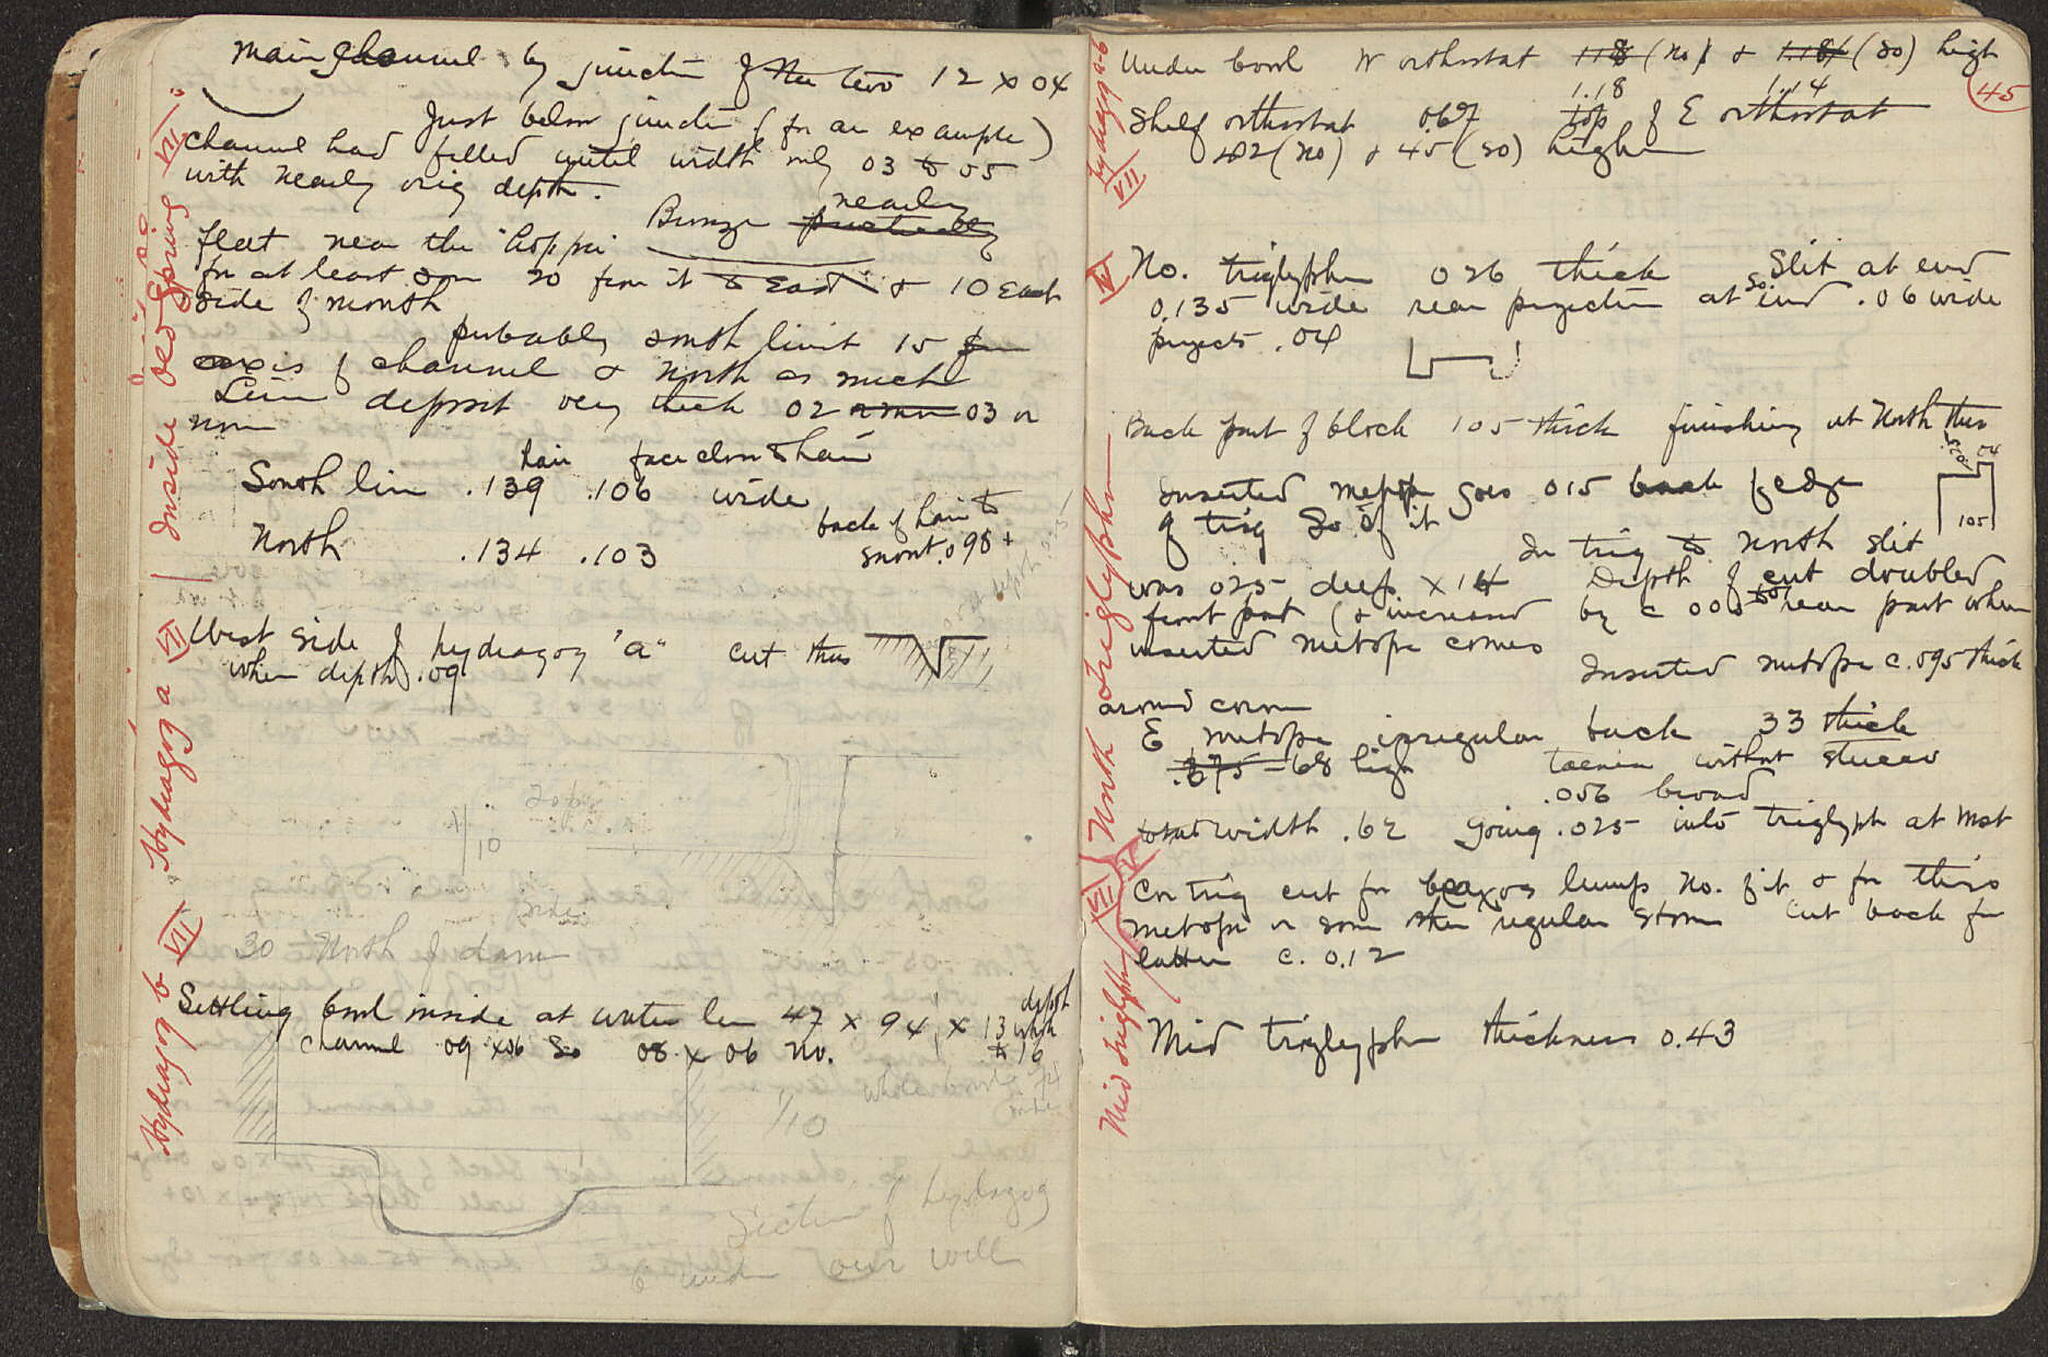 Main channel by junction of the two 12 x 04
Just below junction (for an example)
channel had filled until width only 03 to 05
with nearly orig depth.
Bronze practically nearly
flat near the
for at least 20 from it to East & 10 each
side of mouth
probably south limit 15 from
axis of channel & North as much
Lime deposit very thick 02 or more 03 or
more
hair face close to hair
South lion .139 .106 wide
North .134 .103
back of hair to
snout .098+
West side of hydragog "a" cut thus
when depth .09
1/10
30 North of dam
Settling bowl inside at water len 47 x 94 x 13 depth which
channel 09 x06 So 08 x 06 No. to 16
1/10
Section of hydragog
b under our wall
Inside Old Spring VI
Hydragog a VII
Hydragog b VII
45
Under bowl W orthostat 118 (No) & 1.181 (So) high
1.18 1.14
Shelf orthostat .067 top of E orthostat
482 (No) & 45 (So) higher
Hydragog a-b VII
IV
No. triglyph 026 thick Slit at end
0.135 wide rear projection at So. end .06 wide
projects .04
Back part of block 105 thick finishing at North thus
04
105
Inserted metope goes 015 back of edge
of trig So of it
In trig to North slit
was 025 deep x 14 Depth of cut doubled
front part (& increased by c 005 to rear part when
inserted metope comes
Inserted metope c .095 thick
around corner
E metope irregular back 33 thick
.675 - 68 high taenia without stucco
.056 broad
total width .62 going .025 into triglyph at West
North Triglyph
Cor trig cut for lump No. of it & for this
metope or some other regular stone Cut back for
latter c. 0.12
Mid triglyph thickness 0.43
Mid triglyph VI V